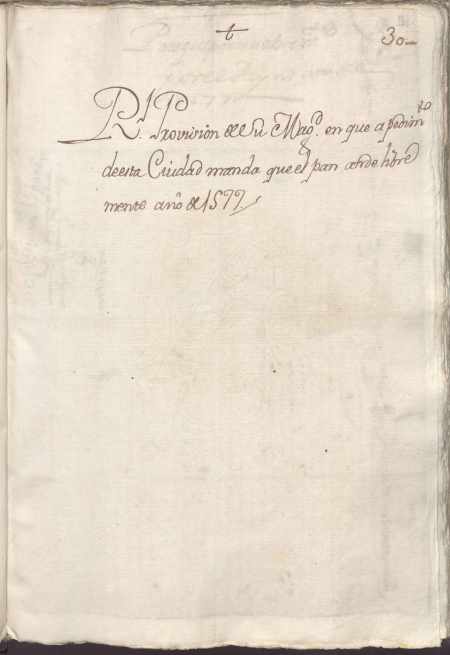 t
30
Rl. Provision de su Magd. en que a pedimto
de esta Ciudad manda que el pan ande libre
mente año de 1577